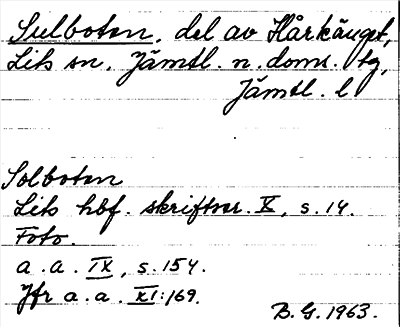 Sulboten, del av Hårkänget,
Lits sn. Jämtl. n. doms. tg,
Jämtl. l
Solboten
Lits hbf. skriftser. X, s. 14.
Foto.
a. a. IX, s. 154.
Jfr a. a. XI:169.
B. G. 1963.